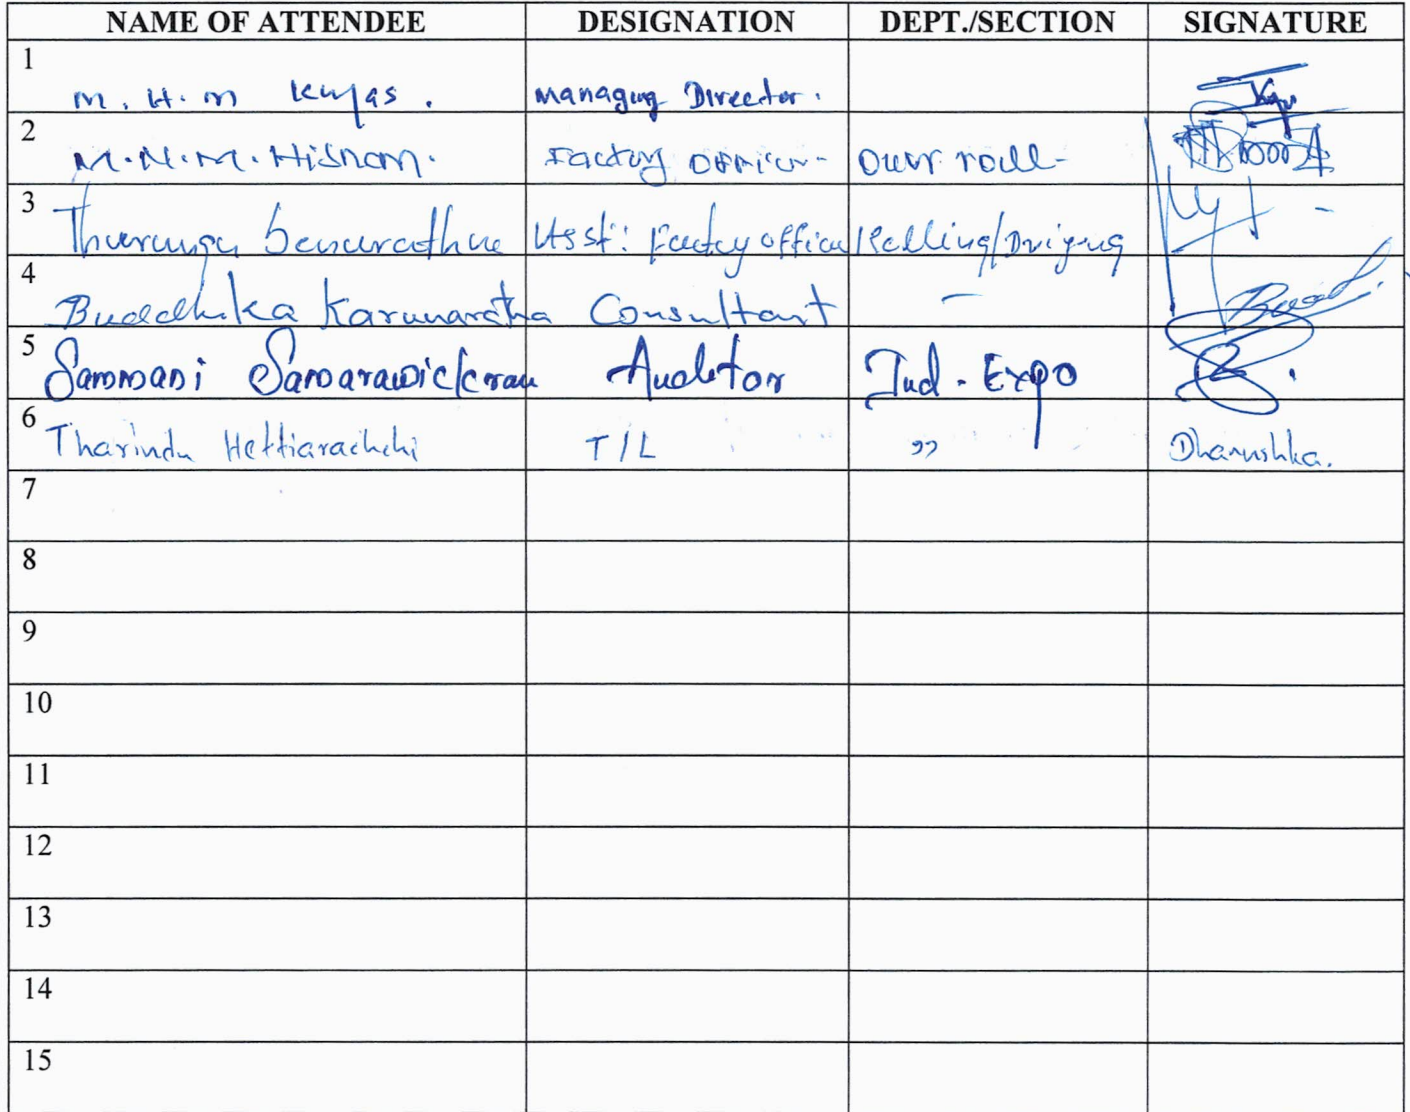 NAME OF ATTENDEE DESIGNATION DEPT./SECTION SIGNATURE
1
M. H. M Kuyas. Managing Director.
2
M.N.M. Hisham. Factory Officer- Over roll-
3
Tharanga Senarathne Asst: Factory officer Rolling/Drying
4
Buddhika Karunaratha Consultant -
5
Sammani Samarawickrama Auditor Ind - Expo
6
Tharindu Hettiarachchi T/L " Dhanushka.
7
8
9
10
11
12
13
14
15